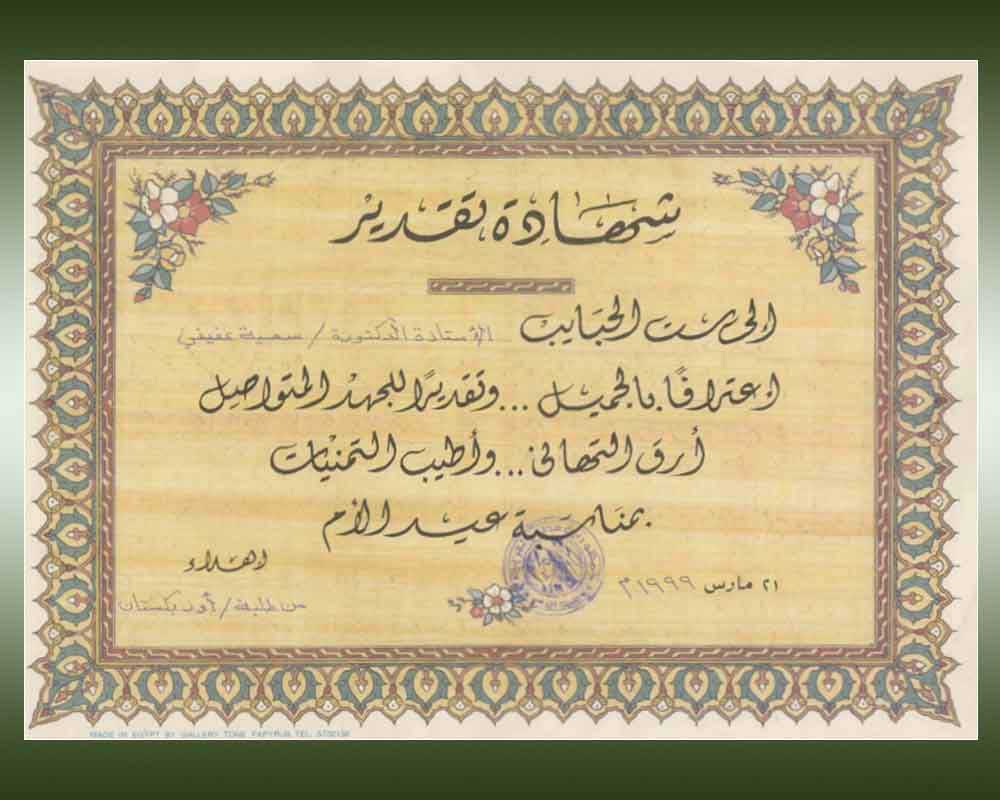 شهادة تقدير
إلى ست الحبايب الأستاذة الدكتورة / سمية عفيفي
إعترافًا بالجميل ... وتقديرًا للجهد المتواصل
أرق التهانى ... وأطيب التمنيات
بمناسبة عيد الأم
٢١ مارس ١٩٩٩م
اهداء
من طليفة / أوزبكستان
MADE IN EGYPT BY GALLERY TONE PAPYRUS TEL.